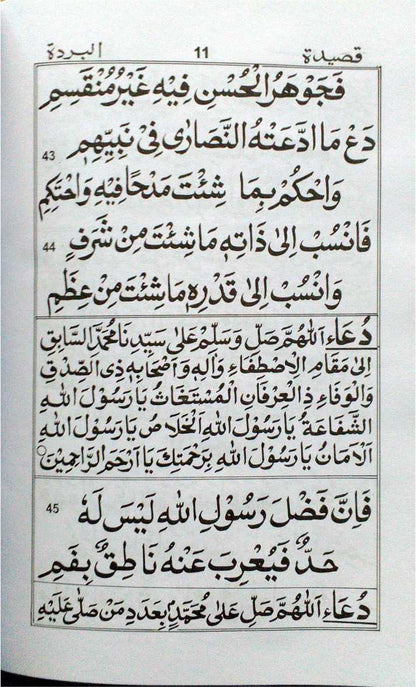 قصيدة 11 البردة
فَجَوْهَرُ الْحُسْنِ فِيْهِ غَيْرُ مُنْقَسِمِ
دَعْ مَا ادَّعَتْهُ النَّصَارٰى فِيْ نَبِيِّهِمِ
43
وَاحْكُمْ بِمَا شِئْتَ مَدْحًا فِيْهِ وَاحْتَكِمِ
فَانْسُبْ اِلٰى ذَاتِهٖ مَا شِئْتَ مِنْ شَرَفٍ
44
وَانْسُبْ اِلٰى قَدْرِهٖ مَا شِئْتَ مِنْ عِظَمِ
دُعَاء اَللّٰهُمَّ صَلِّ وَسَلِّمْ عَلٰى سَيِّدِنَا مُحَمَّدٍ السَّابِقِ
اِلٰى مَقَامِ الْاِصْطِفَاءِ وَاٰلِهٖ وَاَصْحَابِهٖ ذِي الصِّدْقِ
وَالْوَفَاءِ ذَا الْعِرْفَانِ الْمُسْتَغَاثُ يَا رَسُوْلَ اللهِ
الشَّفَاعَةُ يَا رَسُوْلَ اللهِ الْخَلَاصُ يَا رَسُوْلَ اللهِ
الْاَمَانُ يَا رَسُوْلَ اللهِ بِرَحْمَتِكَ يَا اَرْحَمَ الرَّاحِمِيْنَ
فَاِنَّ فَضْلَ رَسُوْلِ اللهِ لَيْسَ لَهٗ
45
حَدٌّ فَيُعْرِبَ عَنْهُ نَاطِقٌ بِفَمِ
دُعَاء اَللّٰهُمَّ صَلِّ عَلٰى مُحَمَّدٍ بِعَدَدِ مَنْ صَلّٰى عَلَيْهِ